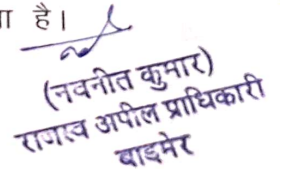 है।
(नवनीत कुमार)
राजस्व अपील प्राधिकारी
बाड़मेर